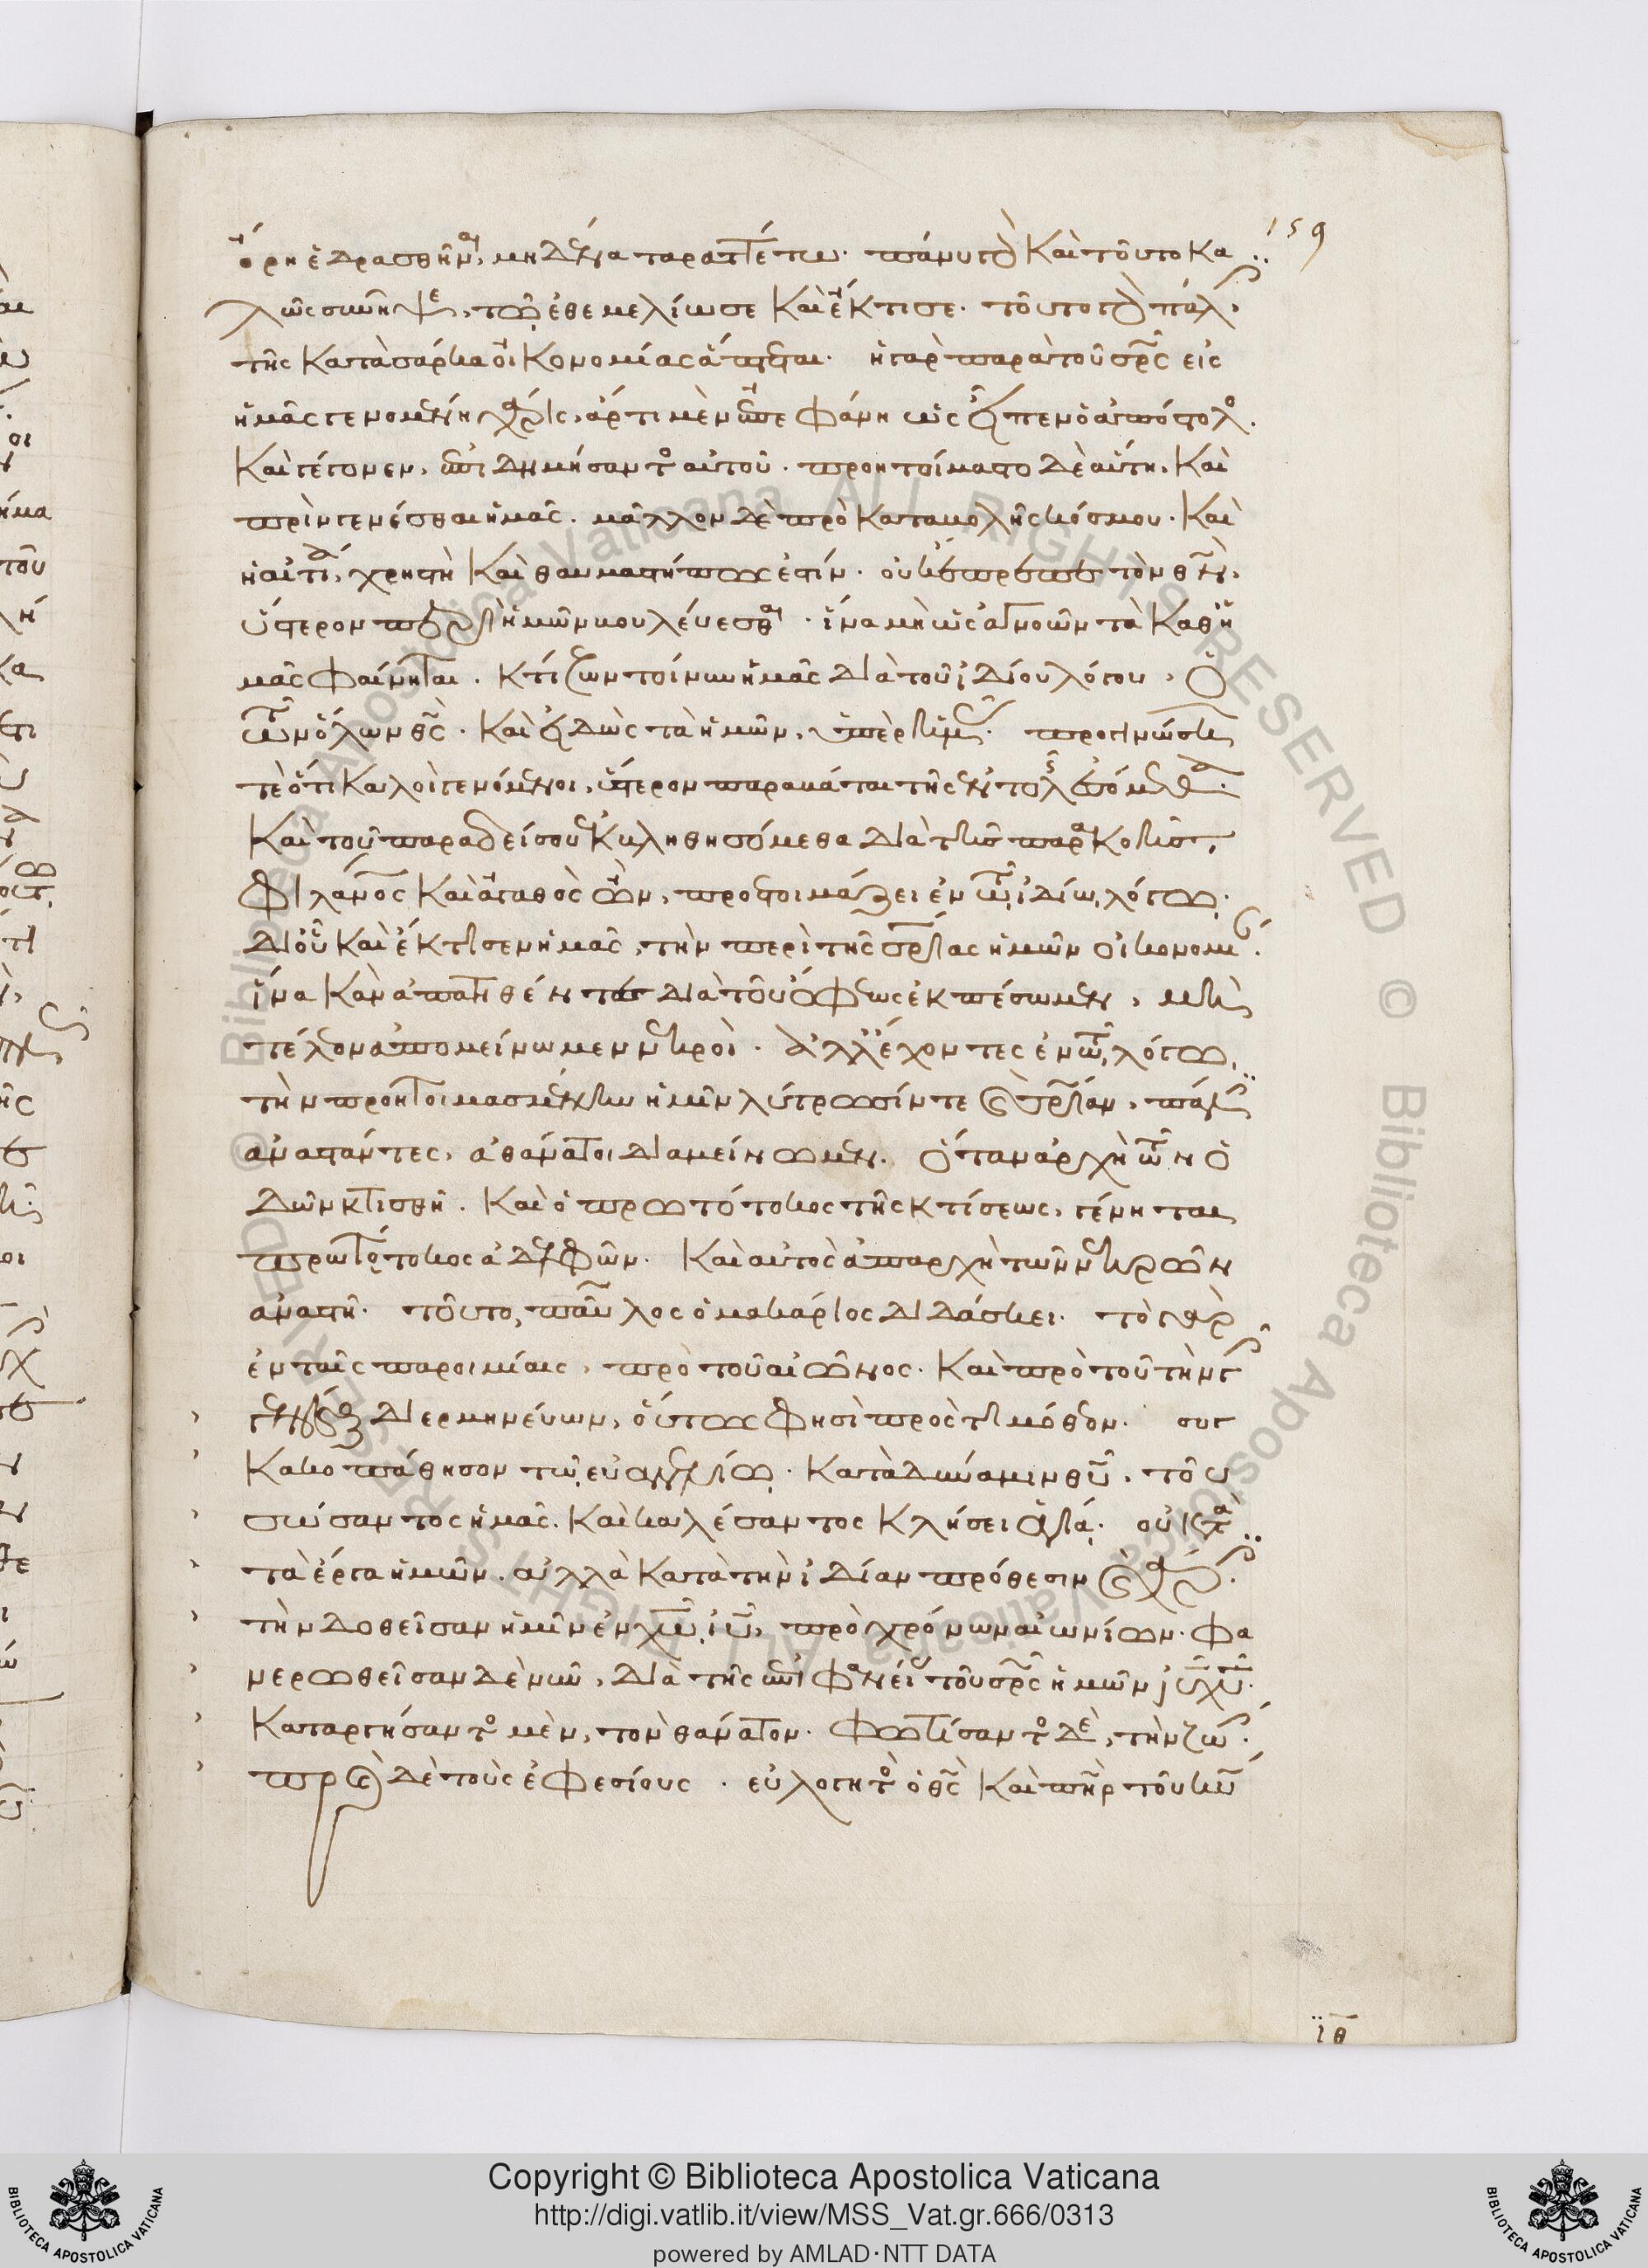 159
ὄρη ἑδρασθῆναι, μηδένα ταραττέτω. πάνυ γὰρ καὶ τοῦτο κα
λῶς συνῆψε, τῷ ἐθεμελίωσε καὶ ἔκτισε. τοῦτο γὰρ πάλιν
τῆς κατὰ σάρκα οἰκονομίας ἅπτεται. ἡ γὰρ παρὰ τοῦ σρς εἰς
ἡμᾶς γενομένη χάρις, ἄρτι μὲν ἐπεφάνη ὡς εἶπεν ὁ ἀπόστολος.
καὶ γέγονεν, ἐπιδημήσαντος αὐτοῦ. προητοίμαστο δὲ αὕτη, καὶ
πρὶν γενέσθαι ἡμᾶς. μᾶλλον δὲ πρὸ καταβολῆς κόσμου. καὶ
ἡ αἰτία, χρηστὴ καὶ θαυμαστή πως ἐστίν. οὐκ ἔπρεπε τὸν θν,
ὕστερον περὶ ἡμῶν βουλεύεσθαι. ἵνα μὴ ὡς ἀγνοῶν τὰ καθ' ἡ
μᾶς φαίνηται. κτίζων τοίνυν ἡμᾶς διὰ τοῦ ἰδίου λόγου, ὁ
τῶν ὅλων θς. καὶ εἰδὼς τὰ ἡμῶν, ὑπὲρ ἡμᾶς. προγινώσκων
τε ὅτι καλοὶ γενόμενοι, ὕστερον παραβάται τῆς ἐντολῆς ἐσόμεθα.
καὶ τοῦ παραδείσου ἐκβληθησόμεθα διὰ τὴν παρακοήν,
φιλάνος καὶ ἀγαθὸς ὤν, προετοιμάζει ἐν τῷ ἰδίῳ λόγῳ.
δι' οὗ καὶ ἔκτισεν ἡμᾶς, τὴν περὶ τῆς σρίας ἡμῶν οἰκονομίαν.
ἵνα κἂν ἀπατηθέντες διὰ τοῦ ὄφεως ἐκπέσωμεν, μὴ
τέλεον ἀπομείνωμεν νεκροί. ἀλλ' ἔχοντες ἐν τῷ λόγῳ,
τὴν προητοιμασμένην ἡμῖν λύτρωσίν τε καὶ σρίαν, πάλιν
ἀναστάντες, ἀθάνατοι διαμείνωμεν. ὅταν ἀρχὴ τῶν ὁ
δῶν κτισθῇ. καὶ ὁ πρωτότοκος τῆς κτίσεως, γένηται
πρωτότοκος ἀδελφῶν. καὶ αὐτὸς ἀπαρχὴ τῶν νεκρῶν
ἀναστῇ. τοῦτο, παῦλος ὁ μακάριος διδάσκει. τὸ γὰρ
ἐν ταῖς παροιμίαις, πρὸ τοῦ αἰῶνος. καὶ πρὸ τοῦ τὴν γῆν
γενέσθαι διερμηνεύων, οὕτως φησὶ πρὸς τιμόθεον. συγ
κακοπάθησον τῷ εὐαγγελίῳ. κατὰ δύναμιν θυ. τοῦ
σώσαντος ἡμᾶς. καὶ καλέσαντος κλήσει ἁγίᾳ. οὐ κατὰ
τὰ ἔργα ἡμῶν. ἀλλὰ κατὰ τὴν ἰδίαν πρόθεσιν καὶ χάριν.
τὴν δοθεῖσαν ἡμῖν ἐν χω ιυ, πρὸ χρόνων αἰωνίων. φα
νερωθεῖσαν δὲ νῦν, διὰ τῆς ἐπιφανείας τοῦ σρς ἡμῶν ιυ χυ.
καταργήσαντος μὲν, τὸν θάνατον. φωτίσαντος δὲ, τὴν ζωήν.
πρὸς δὲ τοὺς ἐφεσίους. εὐλογητὸς ὁ θς καὶ πηρ τοῦ κυ
ιθ
Copyright © Biblioteca Apostolica Vaticana
http://digi.vatlib.it/view/MSS_Vat.gr.666/0313
powered by AMLAD·NTT DATA
BIBLIOTECA APOSTOLICA VATICANA
BIBLIOTECA APOSTOLICA VATICANA